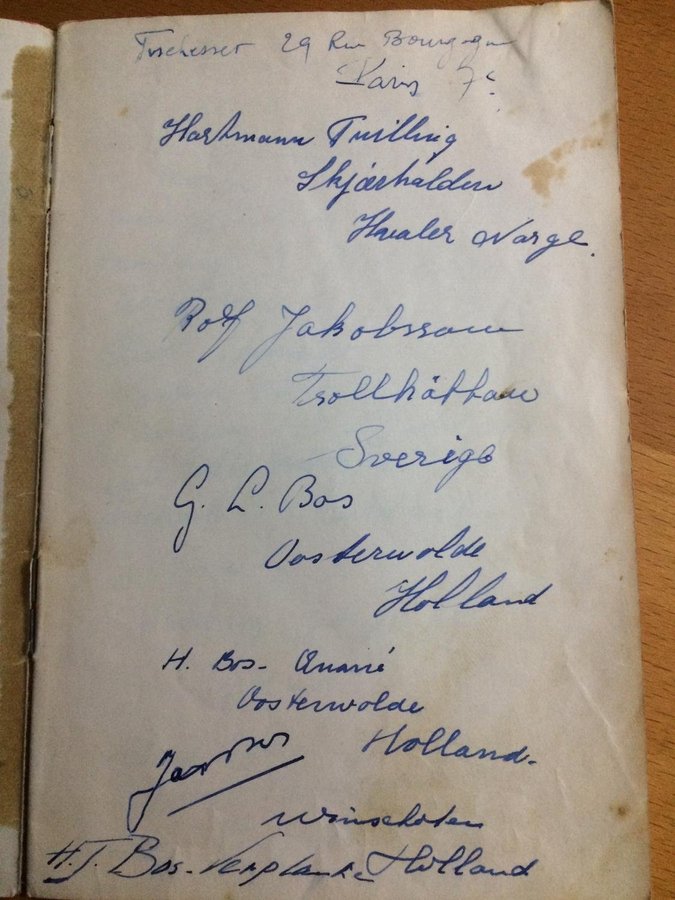 29 Rue Bourgogne
Paris 7e
Hartmann
Skjærhalden
Hvaler Norge.
Rolf Jakobsson
Trollhättan
Sverige
G. L. Bos
Oosterwolde
Holland
H. Bos-
Oosterwolde
Holland-
Winschoten
H. J. Bos-Verplanke Holland